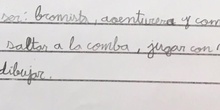 ser: bromista, aventurera y com
saltar a la comba, jugar con
dibujar.